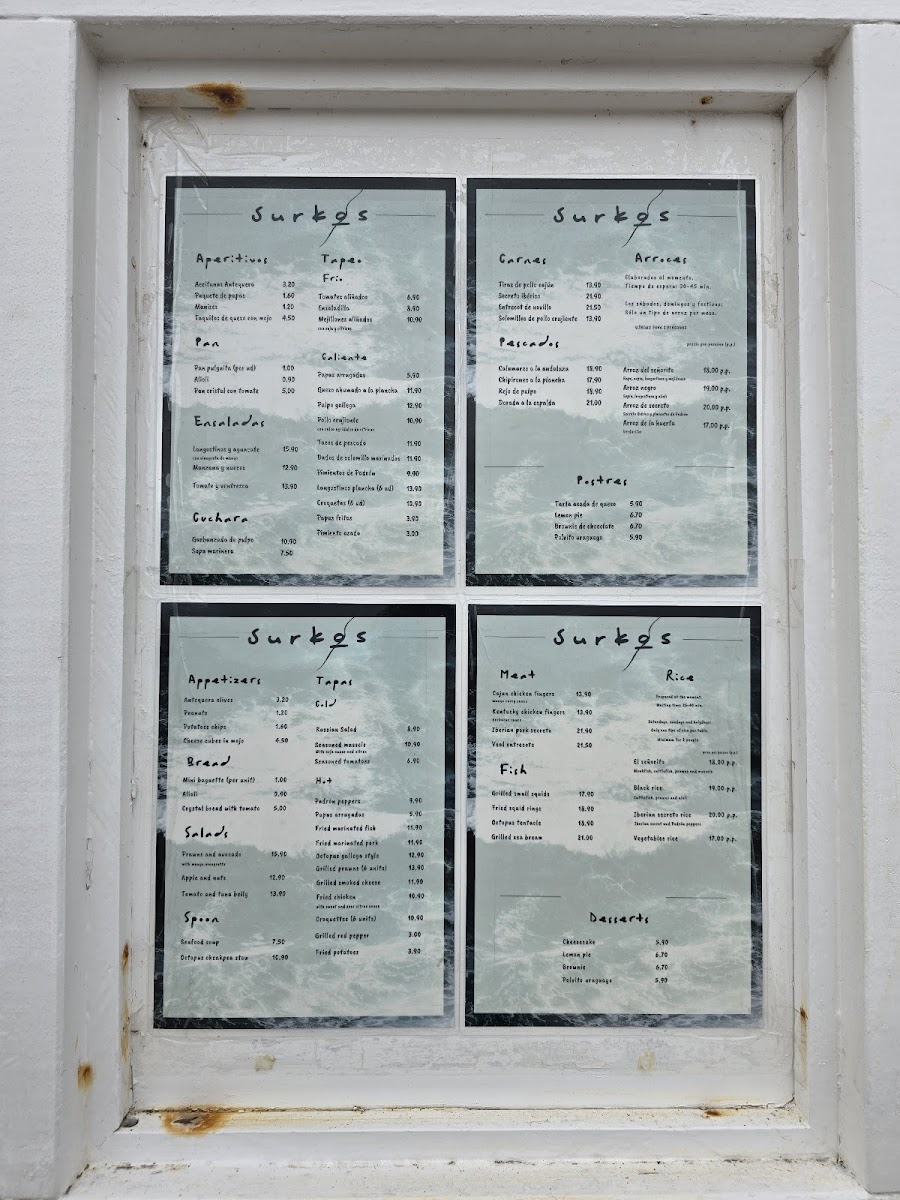 Surkos
Aperitivos
Aceitunas Antequera 3.20
Paquete de papas 1.60
Manises 1.20
Taquitos de queso con mojo 4.50
Pan
Pan pulguita (por ud) 1.00
Alioli 0.90
Pan cristal con tomate 5.00
Ensaladas
Langostinos y aguacate 15.90
con vinagreta de mango
Manzana y nueces 12.90
Tomate y ventresca 13.90
Cuchara
Garbanzada de pulpo 10.90
Sopa marinera 7.50
Tapeo
Frio
Tomates aliñados 6.90
Ensaladilla 8.90
Mejillones aliñados 10.90
con soja y citricos
Caliente
Papas arrugadas 5.90
Queso ahumado a la plancha 11.90
Pulpo gallega 12.90
Pollo crujiente 10.90
Tacos de pescado 11.90
Dados de solomillo marinados 11.90
Pimientos de Padrón 9.90
Langostinos plancha (6 ud) 13.90
Croquetas (6 ud) 10.90
Papas fritas 3.90
Pimiento asado 3.00
Surkos
Carnes
Tiras de pollo cajún 13.90
Secreto ibérico 21.90
Entrecot de novillo 21.50
Solomillos de pollo crujiente 13.90
Pescados
Calamares a la andaluza 18.90
Chipirones a la plancha 17.90
Rejo de pulpo 18.90
Dorada a la espalda 21.00
Arroces
Elaborados al momento.
Tiempo de espera: 30-45 min.
Los sábados, domingos y festivos:
Sólo un tipo de arroz por mesa.
precio por persona (p.p.)
Arroz del señorito 18.00 p.p.
Sepia, rape, langostinos y mejillones
Arroz negro 19.00 p.p.
Sepia, langostinos y alioli
Arroz de secreto 20.00 p.p.
Secreto ibérico y pimientos de Padrón
Arroz de la huerta 17.00 p.p.
Verduritas
Postres
Tarta asada de queso 5.90
Lemon pie 6.70
Brownie de chocolate 6.70
Polvito uruguayo 5.90
Surkos
Appetizers
Antequera olives 3.20
Peanuts 1.20
Potatoes chips 1.60
Cheese cubes in mojo 4.50
Bread
Mini baguette (per unit) 1.00
Alioli 0.90
Crystal bread with tomato 5.00
Salads
Prawns and avocado 15.90
with mango vinaigrette
Apple and nuts 12.90
Tomato and tuna belly 13.90
Spoon
Seafood soup 7.50
Octopus chickpea stew 10.90
Tapas
Cold
Russian Salad 8.90
Seasoned mussels 10.90
With soja sauce and citrus
Seasoned tomatoes 6.90
Hot
Padrón peppers 9.90
Papas arrugadas 5.90
Fried marinated fish 11.90
Fried marinated pork 11.90
Octopus gallega style 12.90
Grilled prawns (6 units) 13.90
Grilled smoked cheese 11.90
Fried chicken 10.90
with sweet and sour citrus sauce
Croquettes (6 units) 10.90
Grilled red pepper 3.00
Fried potatoes 3.90
Surkos
Meat
Cajun chicken fingers 13.90
Kentucky chicken fingers 13.90
barbacue sauce
Iberian pork secreto 21.90
Veal entrecote 21.50
Fish
Grilled small squids 17.90
Fried squid rings 18.90
Octopus tentacle 18.90
Grilled sea bream 21.00
Rice
Prepared at the moment.
Waiting time: 30-40 min.
Saturdays, sundays and holydays:
Only one tipe of rice per table
Minimum for 2 people
price per person (p.p.)
El señorito 18.00 p.p.
Monkfish, cuttlefish, prawns and mussels
Black rice 19.00 p.p.
Cuttlefish, prawns and alioli
Iberian secreto rice 20.00 p.p.
Iberian secret and Padrón peppers
Vegetables rice 17.00 p.p.
Desserts
Cheesecake 5.90
Lemon pie 6.70
Brownie 6.70
Polvito uruguayo 5.90